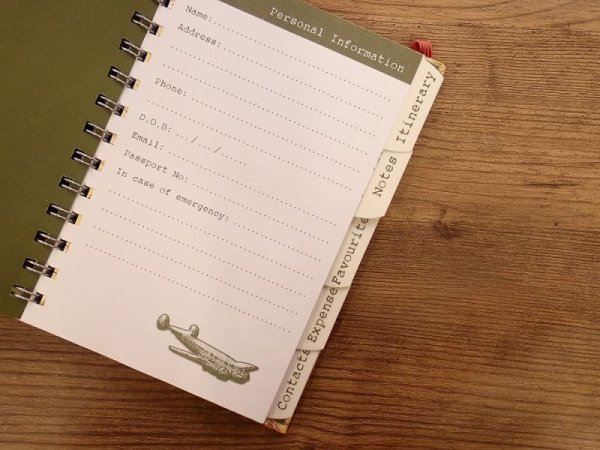 Personal Information
Name:
Address:
Phone:
D.O.B: ../../.....
Email:
Passport No:
In case of emergency:
Itinerary
Notes
Favourite
Expense
Contacts